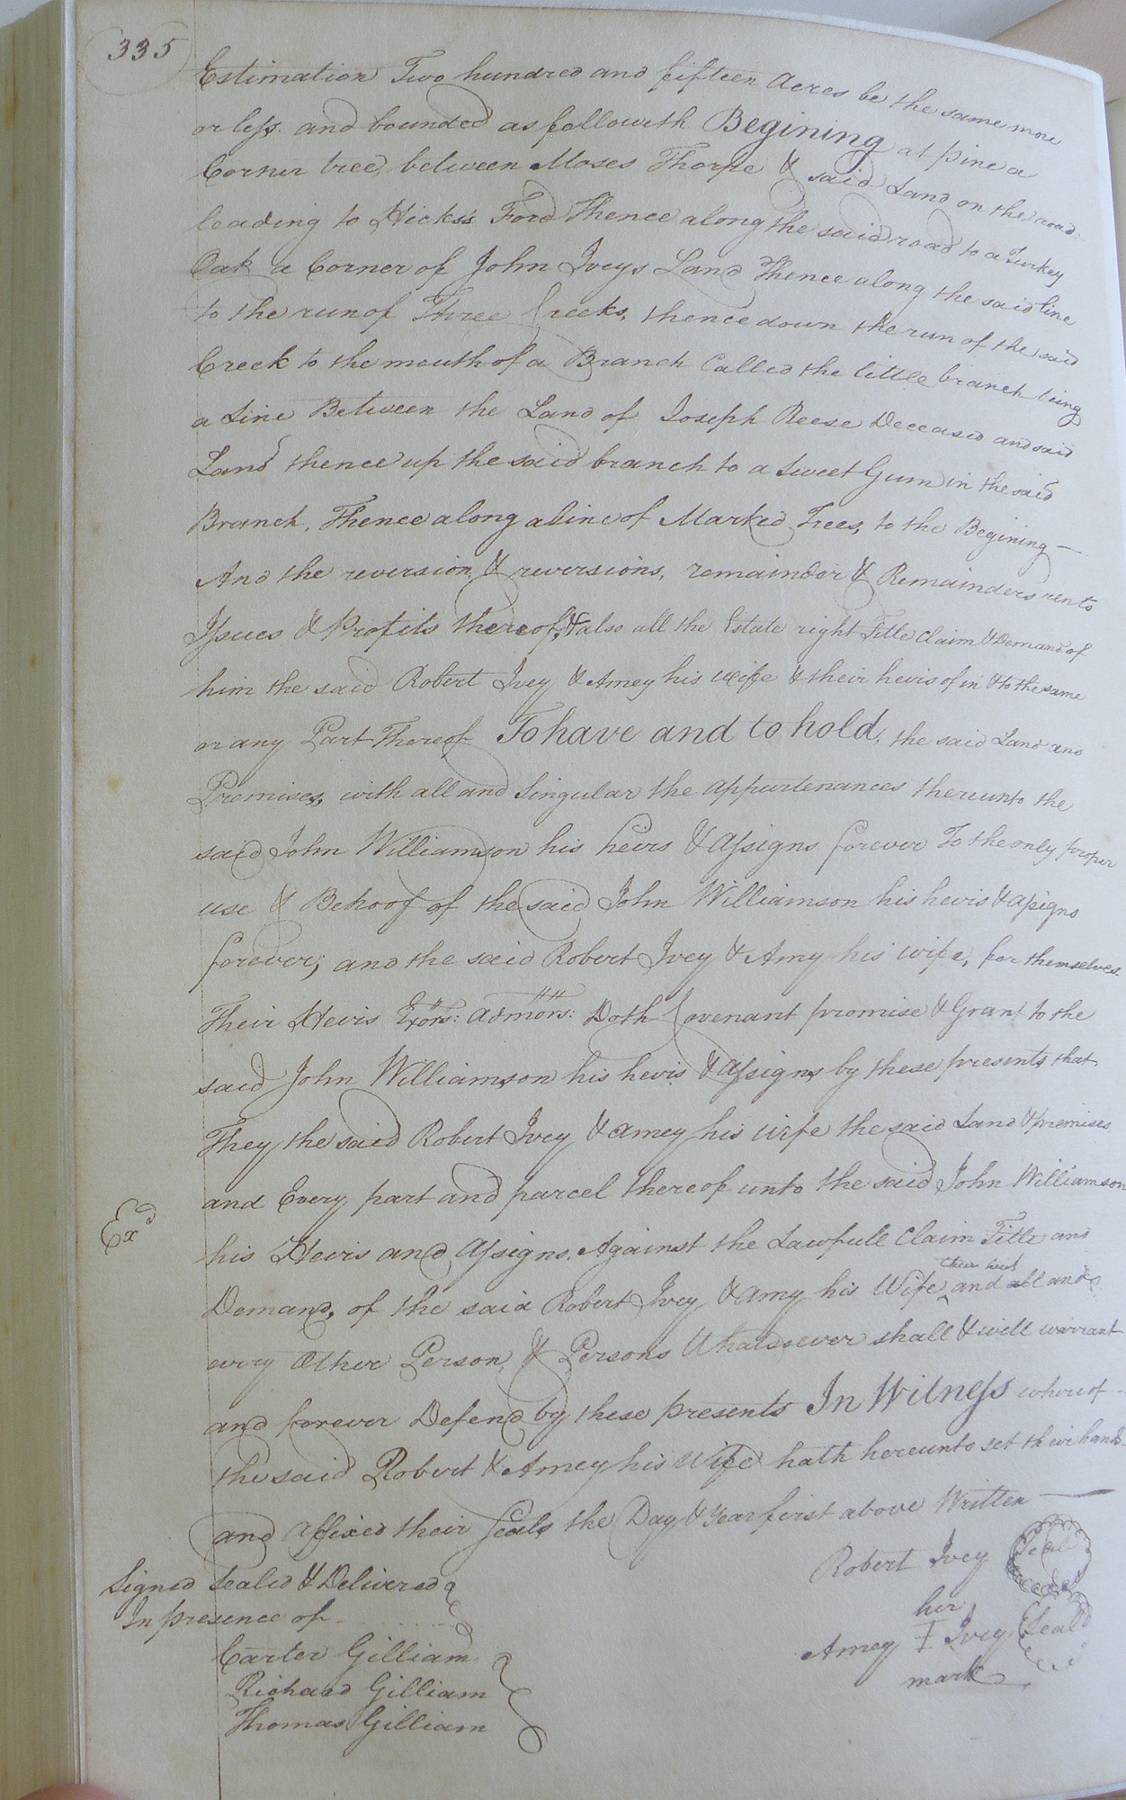 335
Estimation Two hundred and fifteen Acres be the same more
or less. and bounded as followeth Begining at pine a
Corner tree, between Moses Thorpe & said Land on the road
leading to Hicks's Ford Thence along the said road to a Turkey
Oak a Corner of John Iveys Land Thence along the said line
to the run of Three Creeks, thence down the run of the said
Creek to the mouth of a Branch Called the little branch being
a Line Between the Land of Joseph Reese Deceased and said
Land thence up the said branch to a Sweet Gum in the said
Branch, Thence along a Line of Marked Trees, to the Begining —
And the reversion & reversions, remainder & Remainders rents
Issues & Profits thereof, & also all the Estate right Title Claim & Demand of
him the said Robert Ivey & Amey his wife & their heirs of in & to the same
or any Part Thereof To have and to hold, the said Land and
Premises, with all and Singular the appurtenances thereunto the
said John Williamson his heirs & Assigns forever To the only proper
use & Behoof of the said John Williamson his heirs & assigns
forever; and the said Robert Ivey & Amy his wife, for themselves
Their Heirs Exors: Admors: Doth Covenant promise & Grant to the
said John Williamson his heirs & Assigns by these presents that
They the said Robert Ivey & Amey his wife the said Land & premises
and Every part and parcel thereof unto the said John Williamson
Exd
his Heirs and Assigns, Against the Lawfull Claim Title and
Demand, of the said Robert Ivey & Amy his Wife ^ their heirs and all and
every Other Person, & Persons Whatsoever shall & will warrant
and forever Defend by these presents In Witness whereof
the said Robert & Amey his Wife hath hereunto set their hands
and affixed their Seals the Day & Year first above Written —
Signed Sealed & Delivered
In presence of
Carter Gilliam
Richard Gilliam
Thomas Gilliam
Robert Ivey Seal
her
Amey I Ivey Seal
mark